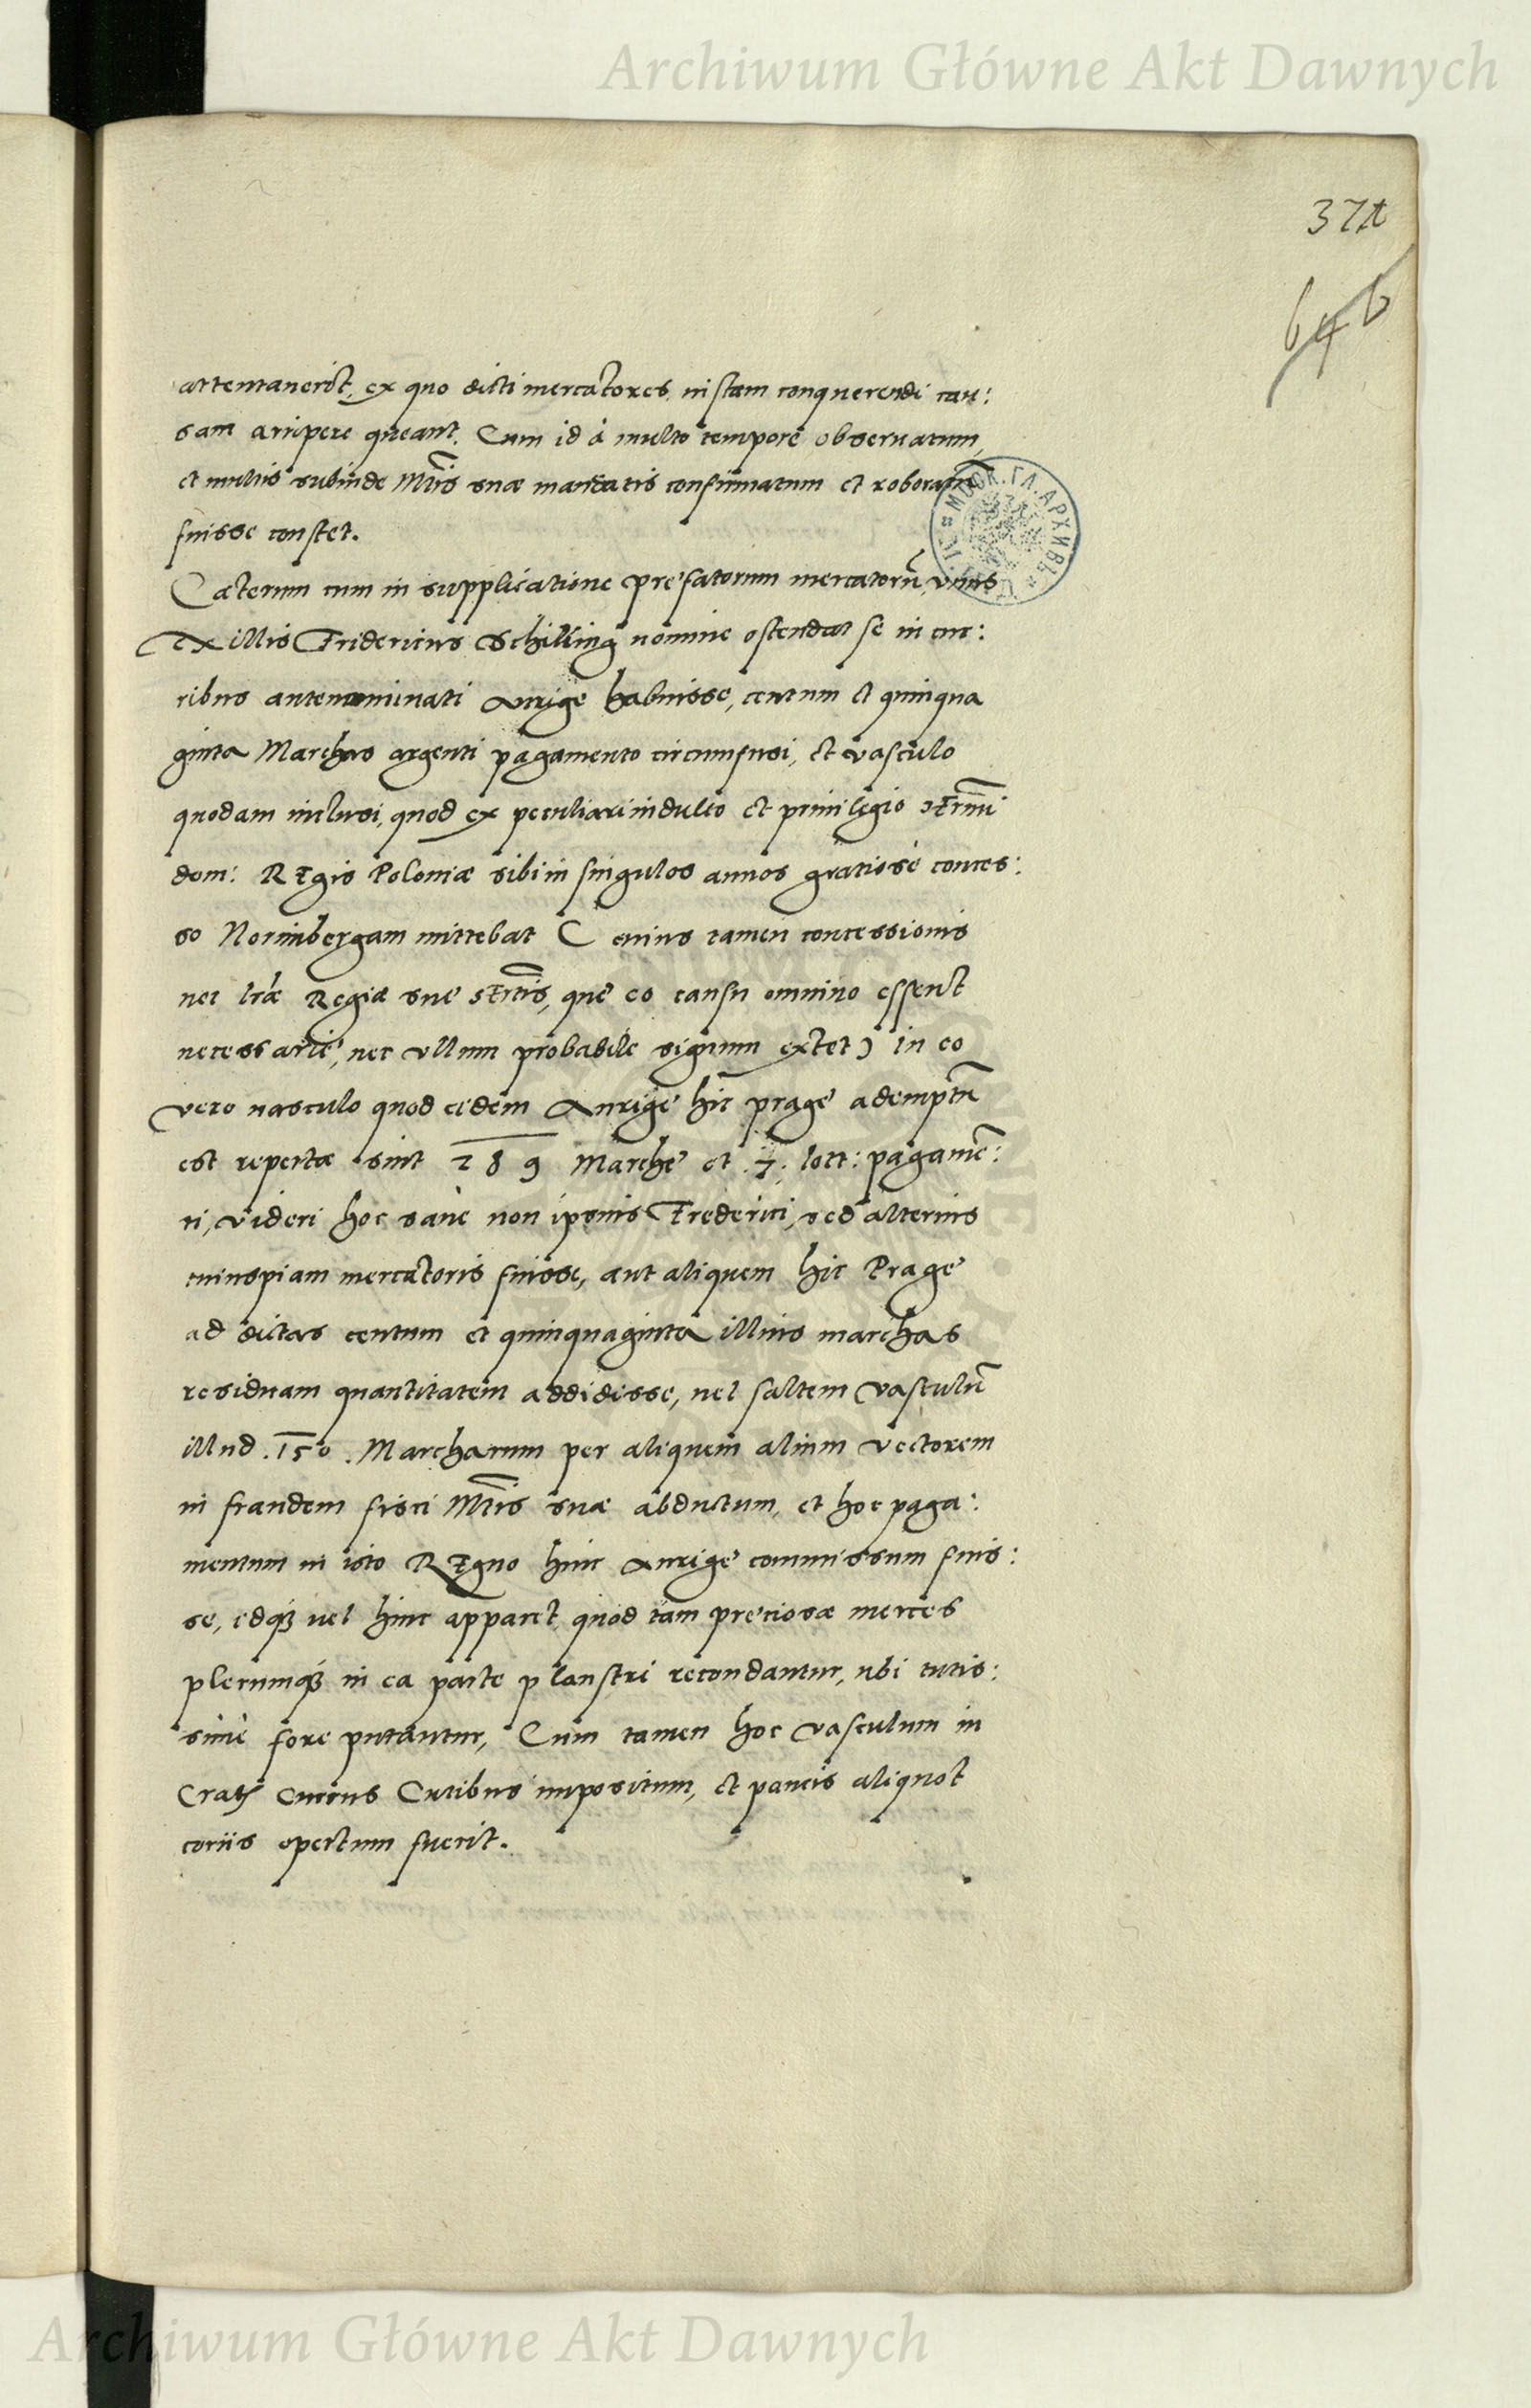 Archiwum Główne Akt Dawnych
371
646
attentauerit, ex quo dicti mercatores iustam conquerendi cau:
sam arripere queant. Cum id à multo tempore obseruatum,
et multis subinde Mtis suæ mandatis confirmatum et roboratum
fuisse constet.
Cæterum cum in supplicatione prefatorum mercatorũ, vnus
ex illis Fridericus Schilling nomine ostendat se in cur:
ribus antenominati Aurige habuisse, centum et quinqua
ginta Marchas argenti pagamento circumfusi, et vasculo
quodam inclusi, quod ex peculiari indulto et priuilegio sermi
dom: Regis Poloniæ sibi in singulos annos gratiosè conces:
so Norimbergam mittebat ( cuius tamen concessionis
nec lræ Regiæ sue sertis, que eo casu omnino essent
necessarie, nec vllum probabile signum extet) in eo
vero uasculo quod eidem Aurige hic prage ademptũ
est repertæ sint 289 Marche et .7. lott: pagamẽ:
ti, videri hoc sanè non ipsius Frederici, sed alterius
cuiuspiam mercatoris fuisse, aut aliquem hic Prage
ad dictas centum et quinquaginta illius marchas
residuam quantitatem addidisse, uel saltem vasculũ
illud .150. Marcharum per aliquem alium vectorem
in fraudem fisci Mtis suæ abductum, et hoc paga:
mentum in isto Regno huic Aurige commissum fuis:
se, idq3 uel hinc apparet, quod tam preciosæ merces
plerumq3 in ea parte plaustri recondantur, ubi tutis:
simè fore putantur, Cum tamen hoc vasculum in
Crati currus Cutibus impositum, et paucis aliquot
coriis opertum fuerit.
Archiwum Główne Akt Dawnych